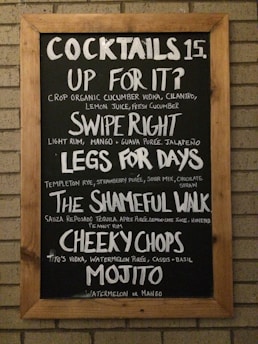 COCKTAILS 15.
UP FOR IT?
CROP ORGANIC CUCUMBER VODKA, CILANTRO,
LEMON JUICE, FRESH CUCUMBER
SWIPE RIGHT
LIGHT RUM, MANGO + GUAVA PURÉE, JALAPEÑO
LEGS FOR DAYS
TEMPLETON RYE, STRAWBERRY PURÉE, SOUR MIX, CHOCOLATE
THE SHAMEFUL WALK
SAUZA REPOSADO TEQUILA, APPLE PUREE, LEMON JUICE,
PEANUT RIM
CHEEKY CHOPS
TITO'S VODKA, WATERMELON PURÉE, CASSIS + BASIL
MOJITO
WATERMELON OR MANGO